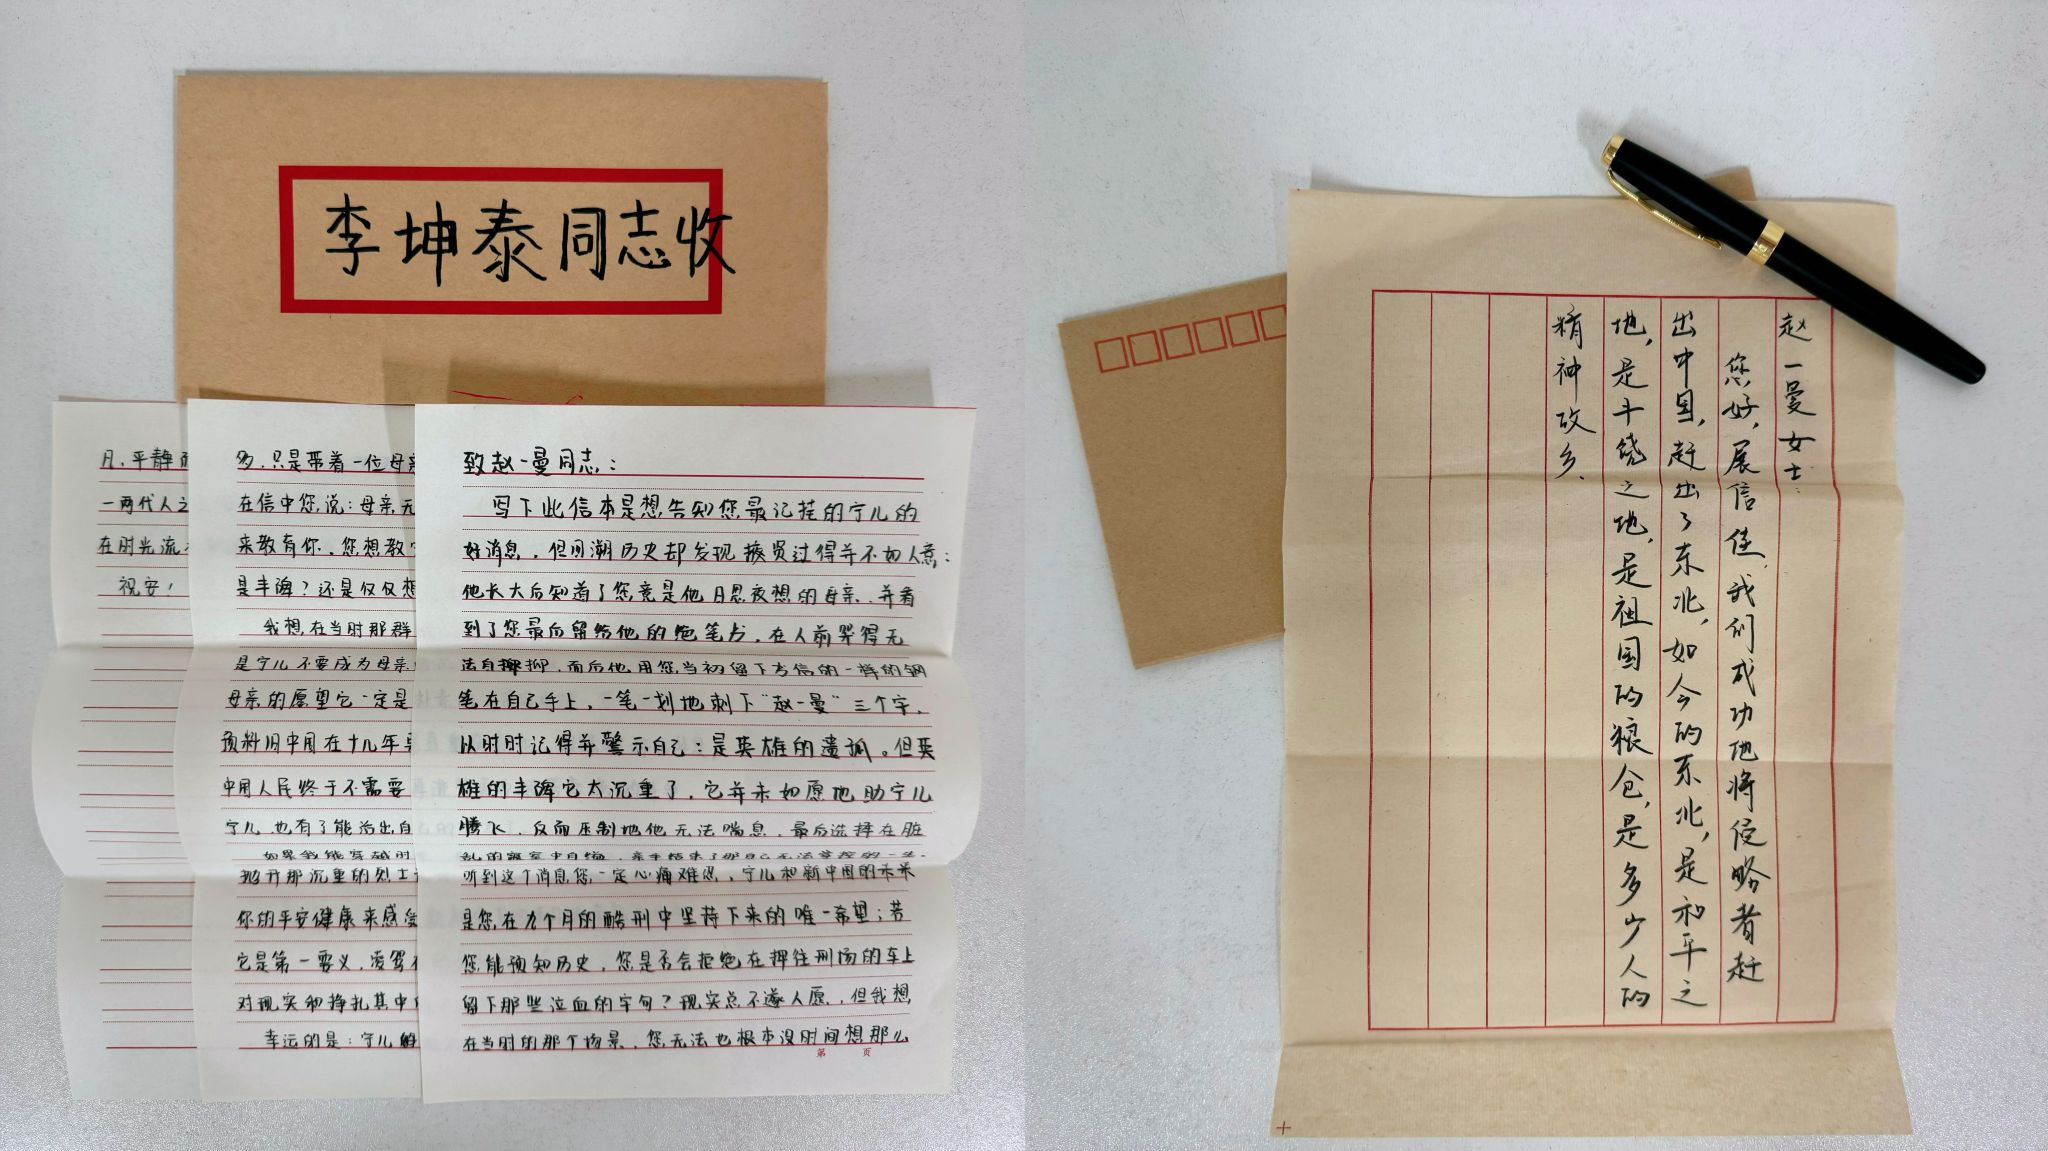 李坤泰同志收
凡、平静而
一两代人之
在时光流
祝安！
多，只是带着一位母亲
在信中您说：母亲无
来教育你，您想教宁
是丰碑？还是仅仅想
我想，在当时那群
是宁儿不要成为母亲
母亲的愿望它一定是
预料旧中国在十几年
中国人民终于不需要
宁儿也有了能活出自
如果我能穿越时
抛开那沉重的烈士
你的平安健康来感受
它是第一要义，凌驾
对现实和挣扎其中
幸运的是：宁儿
致赵一曼同志：
写下此信本是想告知您最记挂的宁儿的
好消息，但回溯历史却发现掖贤过得并不如人意：
他长大后知道了您竟是他日思夜想的母亲，并看
到了您最后留给他的绝笔书，在人前哭得无
法自抑，而后他用您当初留下书信的一样的钢
笔在自己手上，一笔一划地刺下“赵一曼”三个字，
以时时记得并警示自己：是英雄的遗孤。但英
雄的丰碑它太沉重了，它并未如愿地助宁儿
腾飞，反而压制地他无法喘息，最后选择在脏
乱的寝室中自缢，亲手结束了那
听到这个消息您一定心痛难忍，宁儿和新中国的未来
是您在九个月的酷刑中坚持下来的唯一希望；若
您能预知历史，您是否会拒绝在押往刑场的车上
留下那些泣血的字句？现实总不遂人愿，但我想，
在当时的那个场景，您无法也根本没时间想那么
第 页
赵一曼女士：
您好，展信佳，我们成功地将侵略者赶
出中国，赶出了东北，如今的东北，是和平之
地，是丰饶之地，是祖国的粮仓，是多少人的
精神故乡。